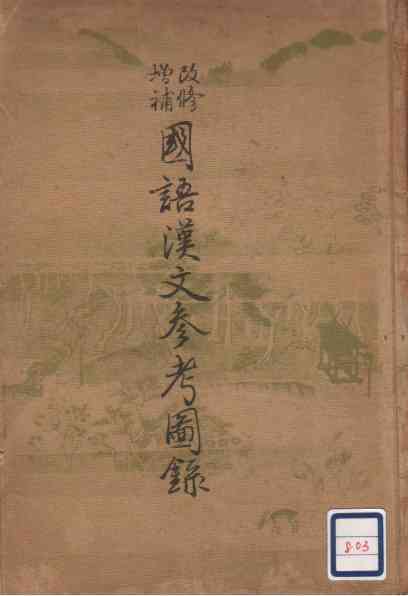 改修
增補
國語漢文參考圖錄
8.03